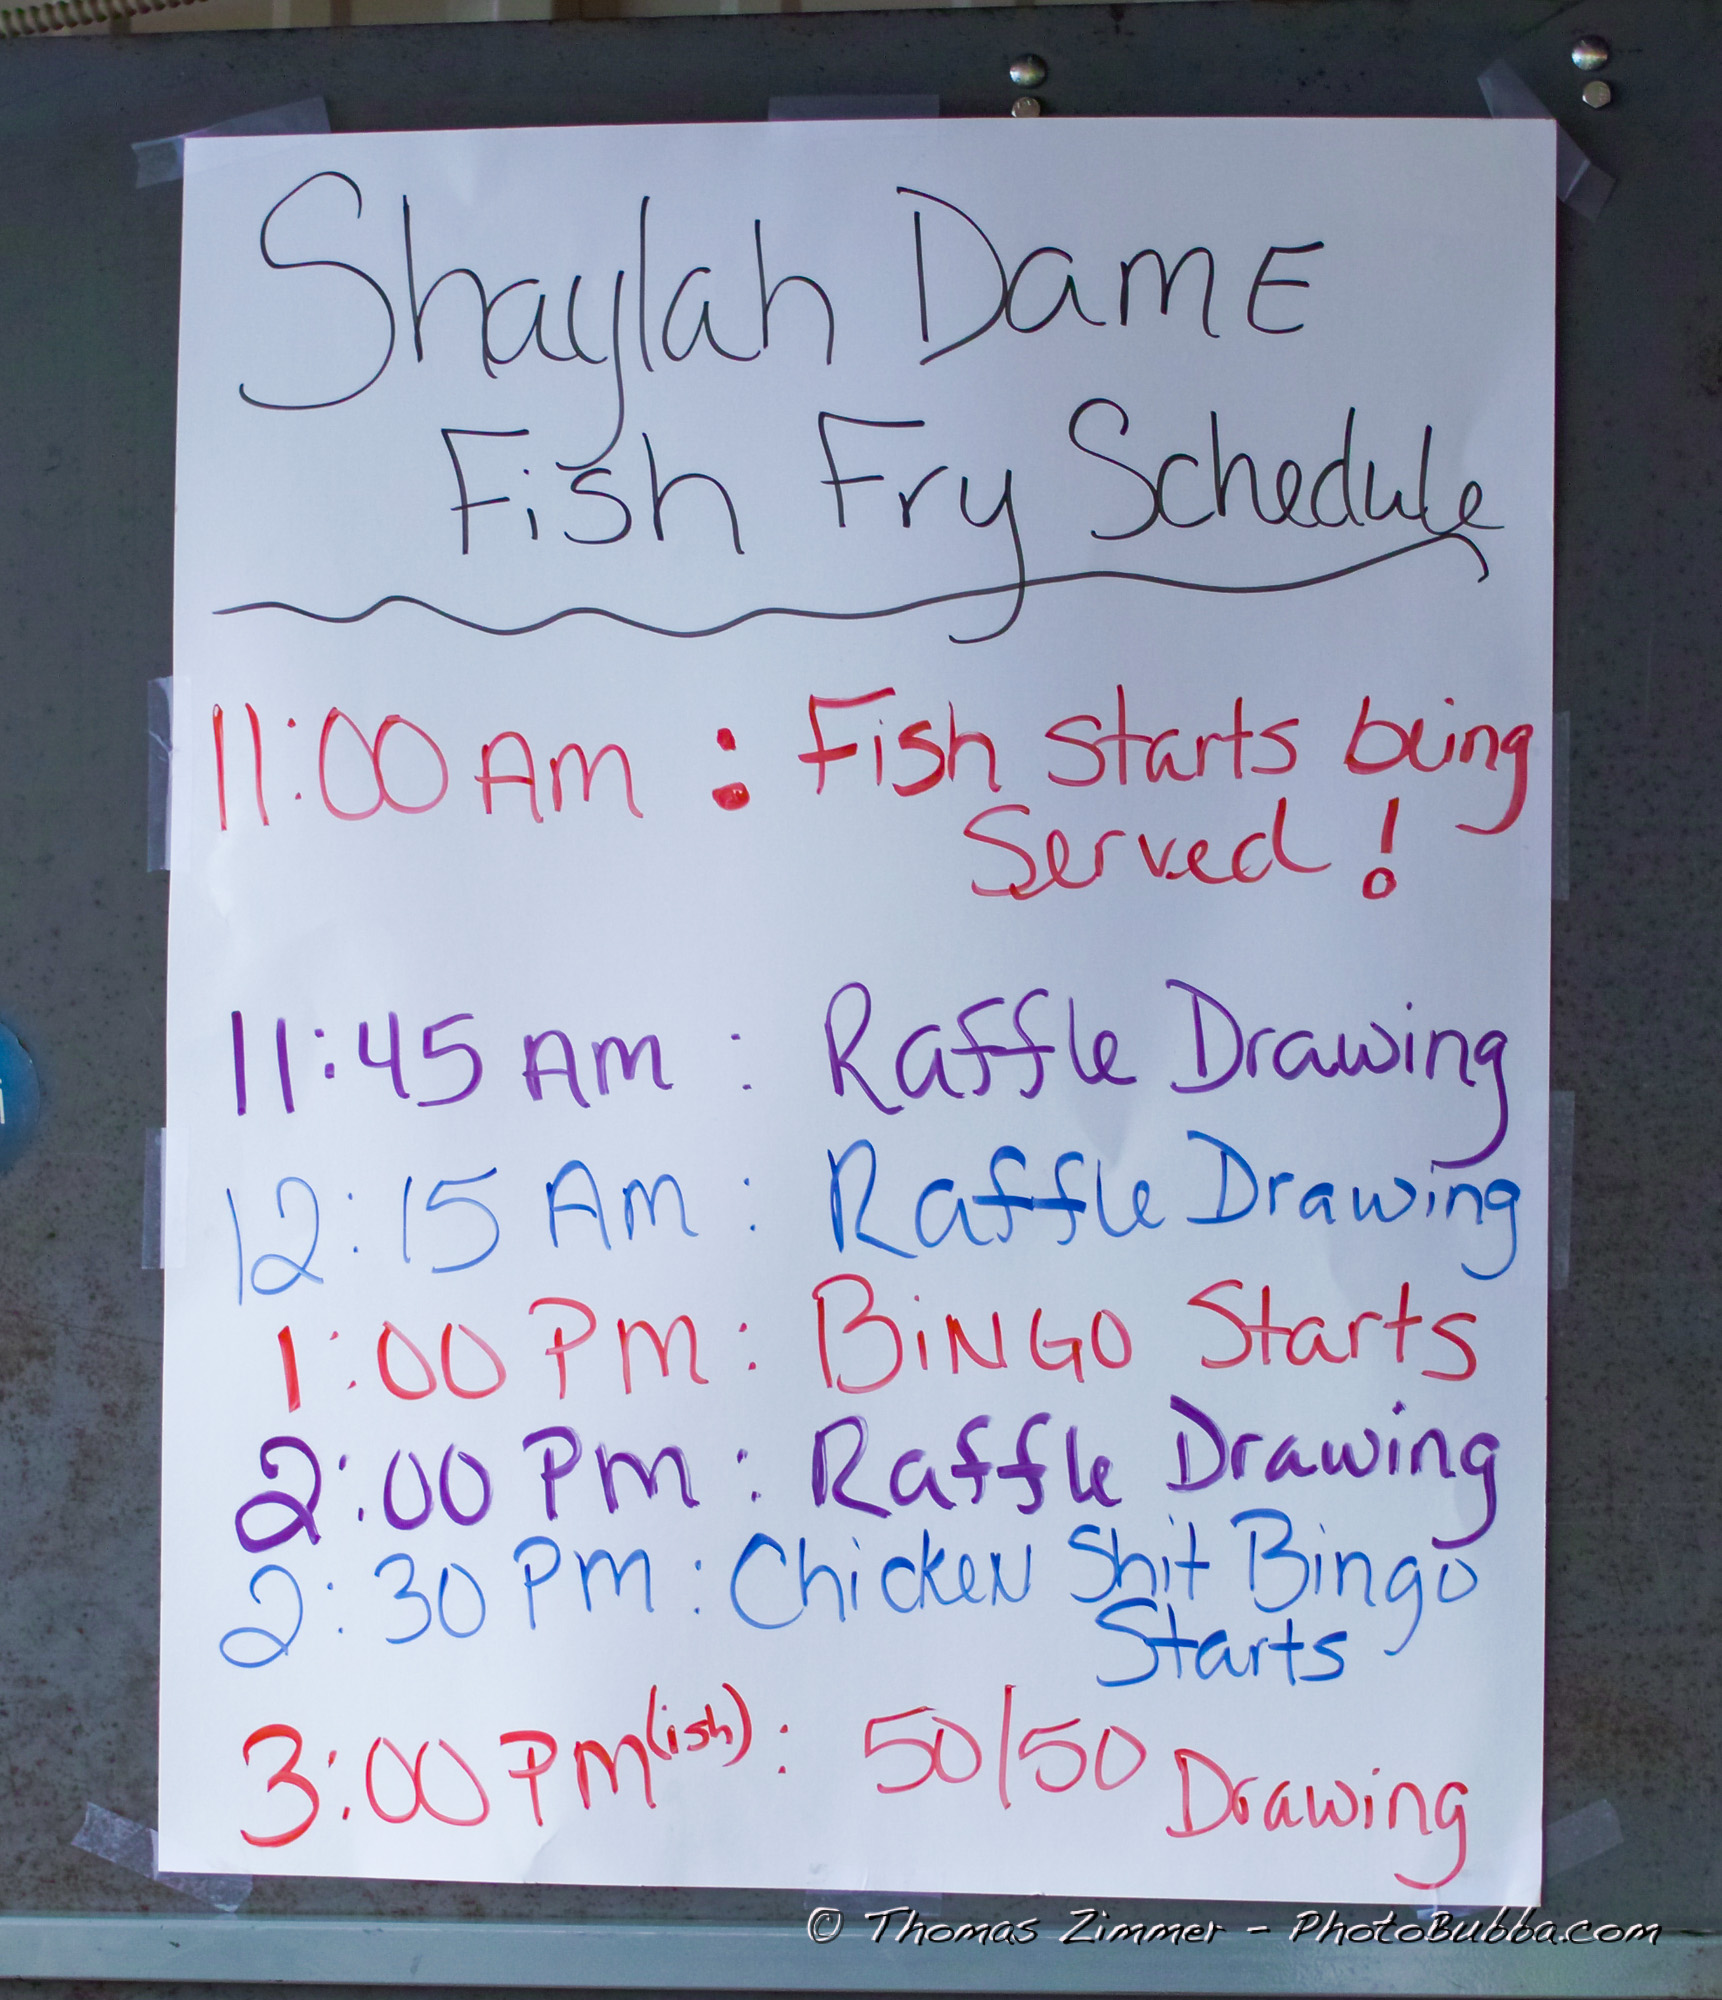 Shaylah Dame
Fish Fry Schedule
11:00 AM : Fish starts being
Served!
11:45 AM : Raffle Drawing
12:15 AM : Raffle Drawing
1:00 PM : BiNGO Starts
2:00 PM : Raffle Drawing
2:30 PM : Chicken Shit Bingo
Starts
3:00 PM (ish) : 50/50 Drawing
© Thomas Zimmer - PhotoBubba.com